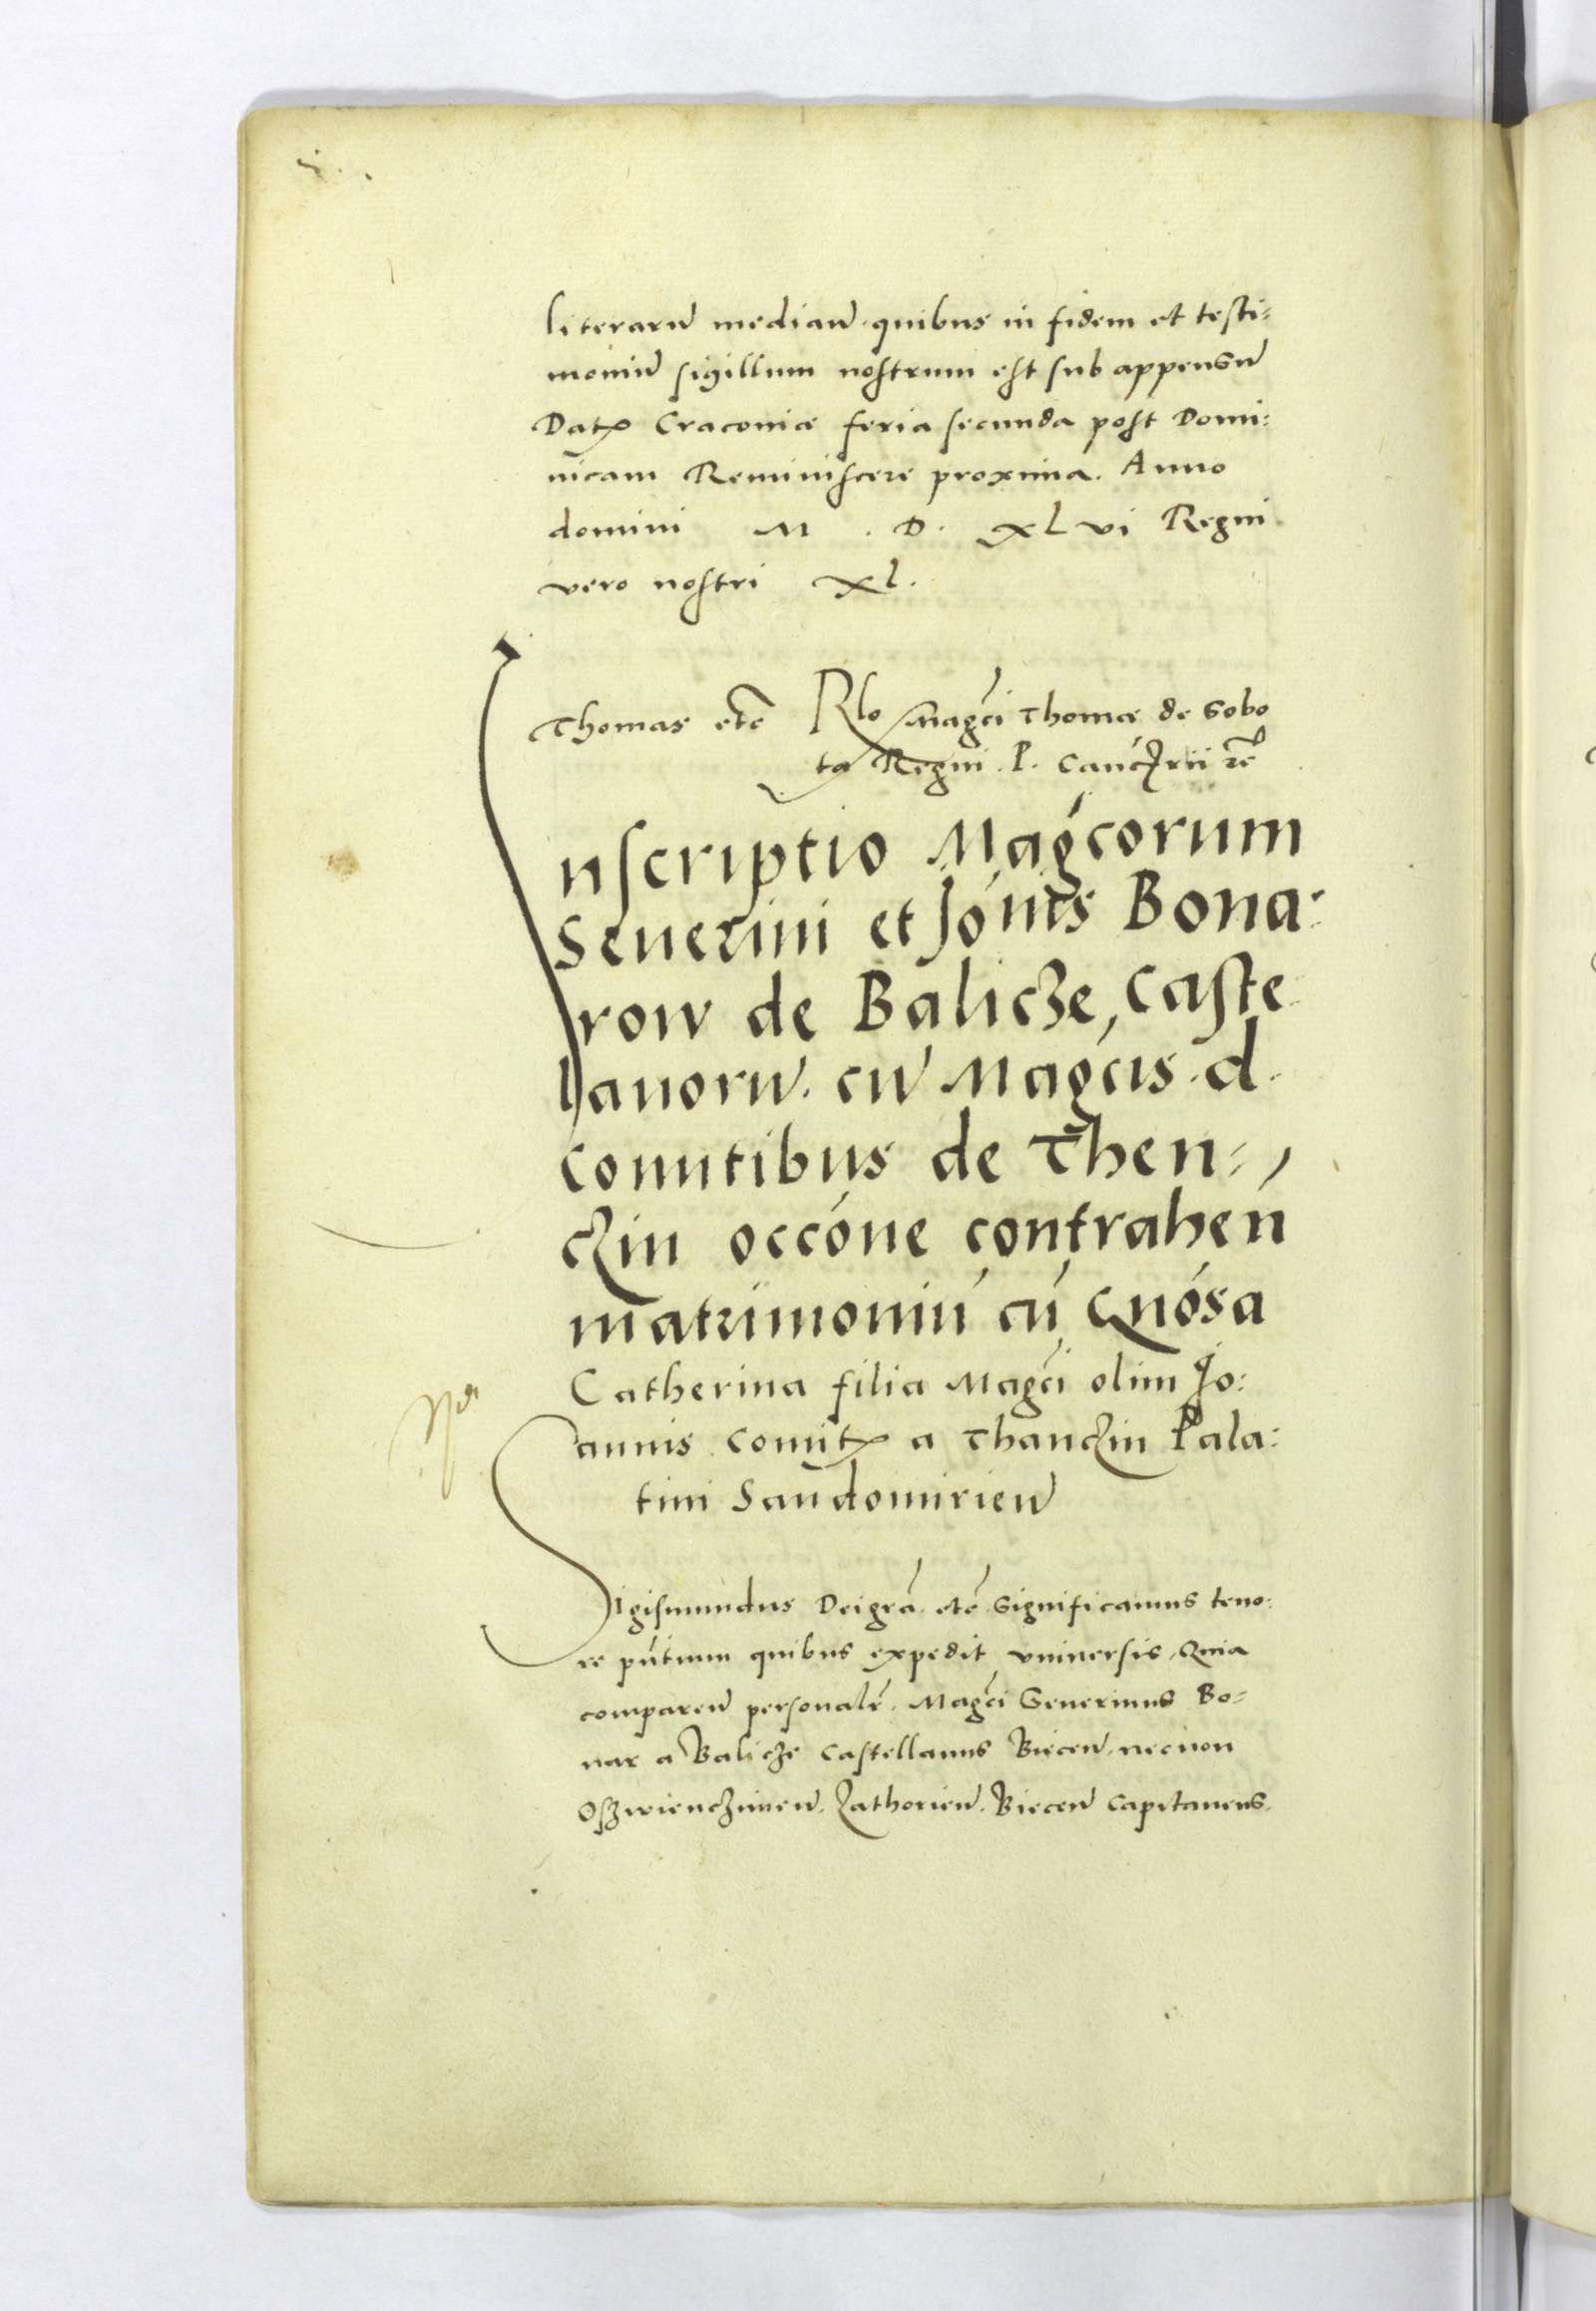 literarũ mediañ. quibus in fidem et testi=
moniũ sigillum nostrum est sub appensũ
Datꝭ Cracoviæ feria secunda post Domi=
nicam Reminiscere proxima. Anno
domini M . D . XL vi Regni
vero nostri XL.
Thomas etc̃ Rlo Mag̃ci Thomæ de Sobo
ta Regni . P . Canc̃rii rc̃
Inscriptio Mag̃corum
Severini et Joñis Bona=
row de Balicze, Caste
lanorũ. cũ Mag̃cis . d .
Comitibus de Then=
czin occõne contraheñ
matrimoniũ cũ G̃nosa
Catherina filia Mag̃ci olim Jo=
annis Comitꝭ a Thanczin Pala=
tini Sandomirieñ
Sigismundus Dei gr̃a. etc̃. Significamus teno=
re p̃ntium quibus expedit universis, Quia
compareñ personalr̃. Mag̃ci Severinus Bo=
nar a Balicze Castellanus Bieceñ. necnon
Oszwienczimeñ. Zathorieñ. Bieceñ Capitaneus.